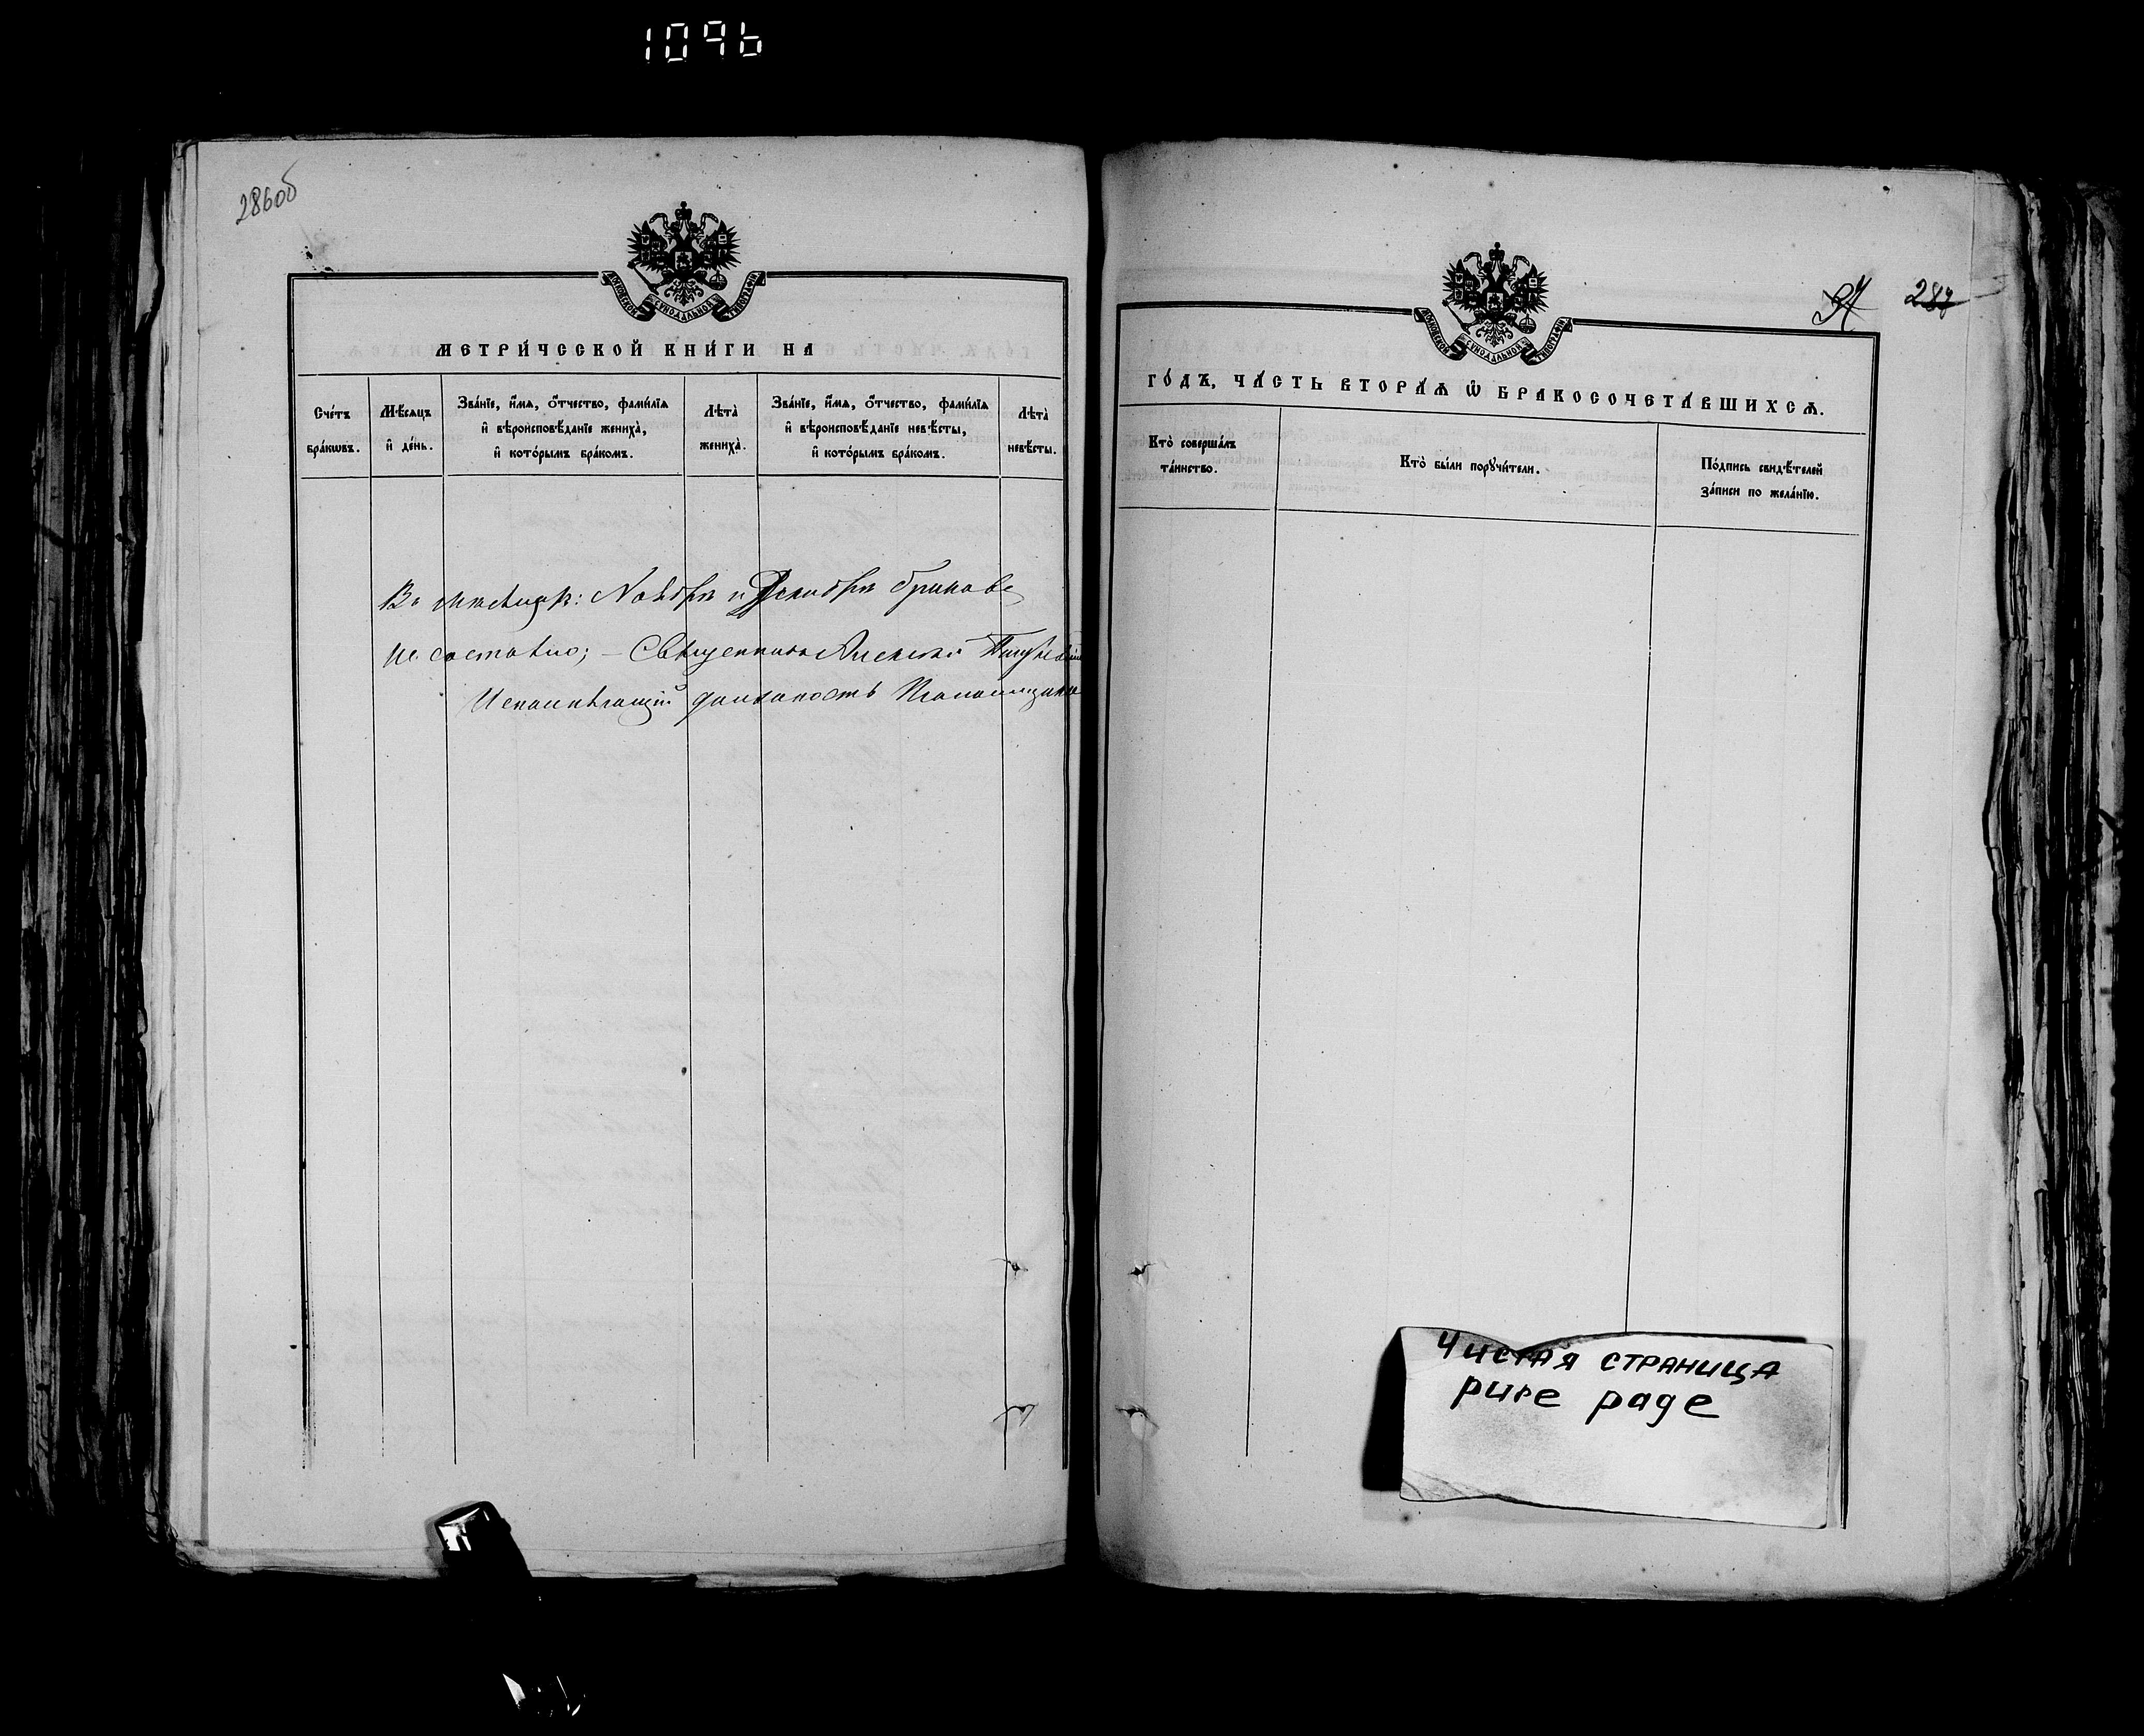 1096
286об
МОСКОВСКОЙ СѴНОДАЛЬНОЙ ТИПОГРАФІИ
МЕТРИ́ЧЕСКОЙ КНИ́ГИ НА
Сче́тъ бра́кѡвъ.
Мѣ́сѧцъ и҆ де́нь.
Зва́нїе, и҆́мѧ, ѻ҆́тчество, фамі́лїѧ
и҆ вѣроисповѣ́данїе жениха̀,
и҆ кото́рымъ бра́комъ.
Лѣта̀ жениха̀.
Зва́нїе, и҆́мѧ, ѻ҆́тчество, фамі́лїѧ
и҆ вѣроисповѣ́данїе невѣ́сты,
и҆ кото́рымъ бра́комъ.
Лѣта̀ невѣ́сты.
Въ мѣсяцахъ: Ноябрѣ и Декабрѣ браковъ
не состоялось; — Священникъ Алексѣй
Исполняющій должность Псаломщика
287
МОСКОВСКОЙ СѴНОДАЛЬНОЙ ТИПОГРАФІИ
ГО́ДЪ, ЧА́СТЬ ВТОРА́Ѧ Ѡ҆ БРАКОСОЧЕТА́ВШИХСѦ.
Кто̀ соверша́лъ
та́инство.
Кто̀ бы́ли порꙋчи́тели.
По́дпись свидѣ́телей
за́писи по жела́нїю.
Чистая страница
pure page